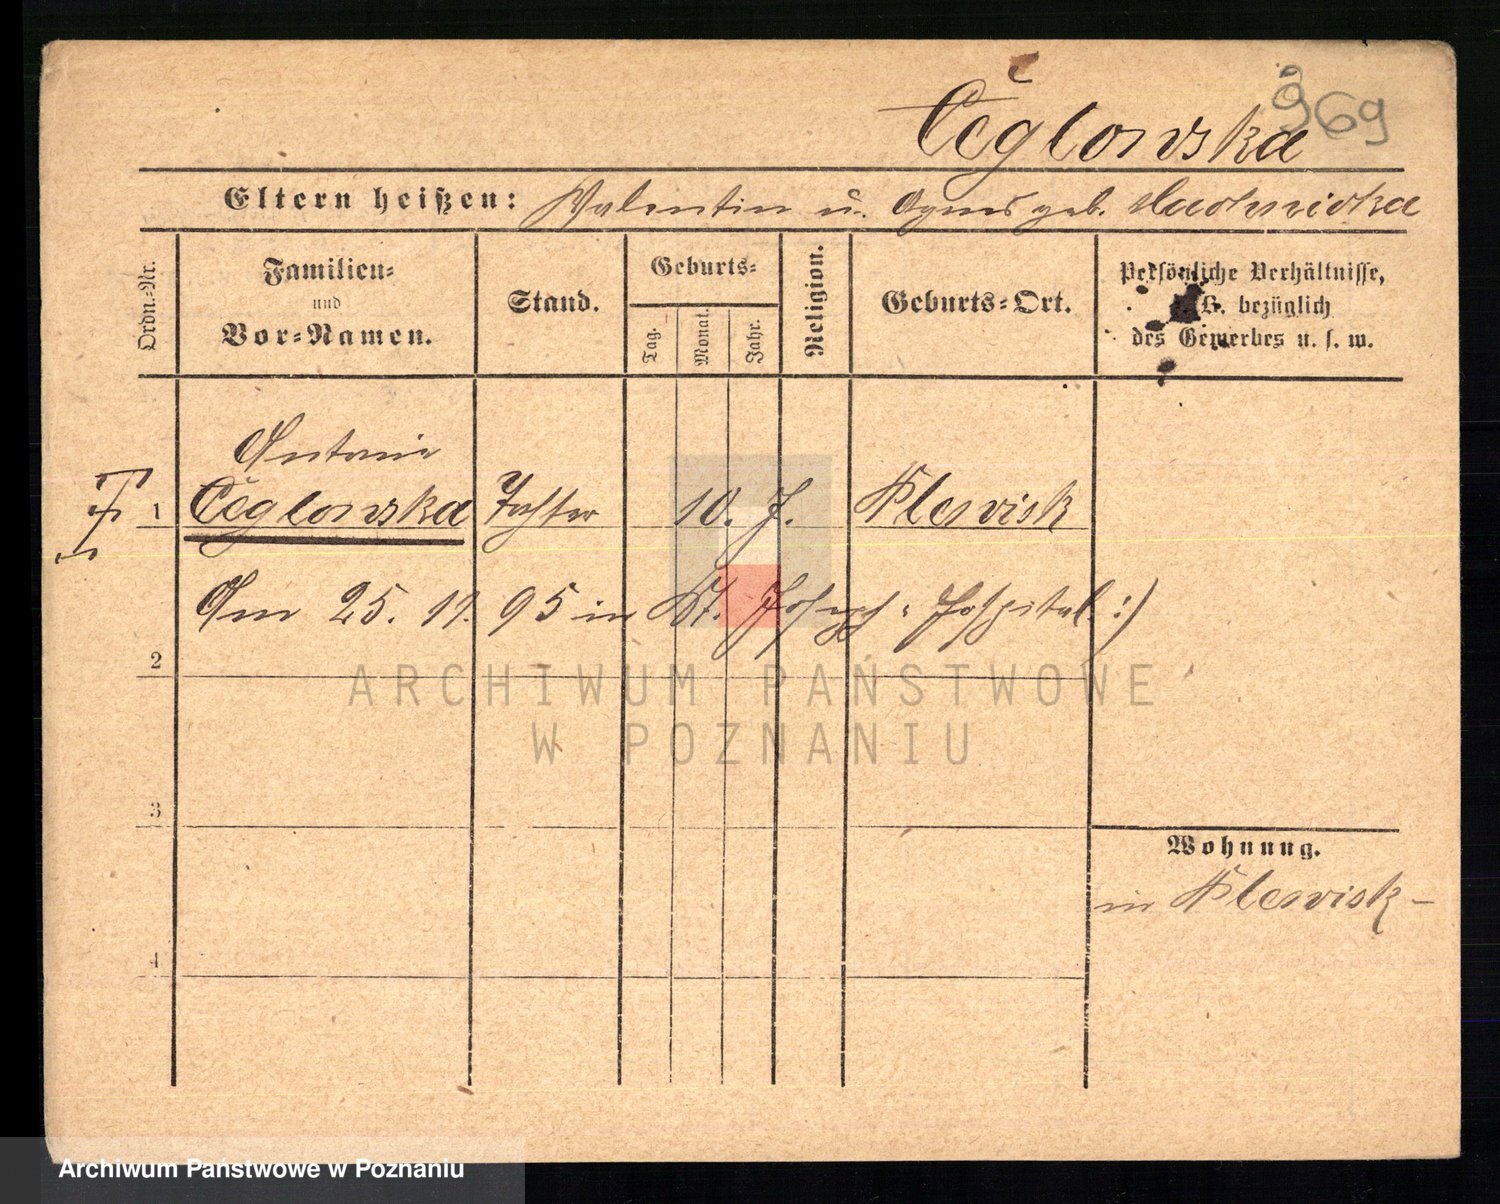 Čeglowska
969
Eltern heißen: Valentin u. Agnes geb.
Ordn.-Nr.
Familien-
und
Vor-Namen.
Stand.
Geburts-
Tag.
Monat.
Jahr.
Religion.
Geburts-Ort.
Persönliche Verhältnisse,
z. B. bezüglich
des Gewerbes u. s. w.
Antonie
1 Čeglowska Tochter 10. J. Plewisk
Am 25. 11. 95 in St. Joseph-Hospital :)
2
3
4
Wohnung.
in Plewisk
ARCHIWUM PAŃSTWOWE
W POZNANIU
Archiwum Państwowe w Poznaniu